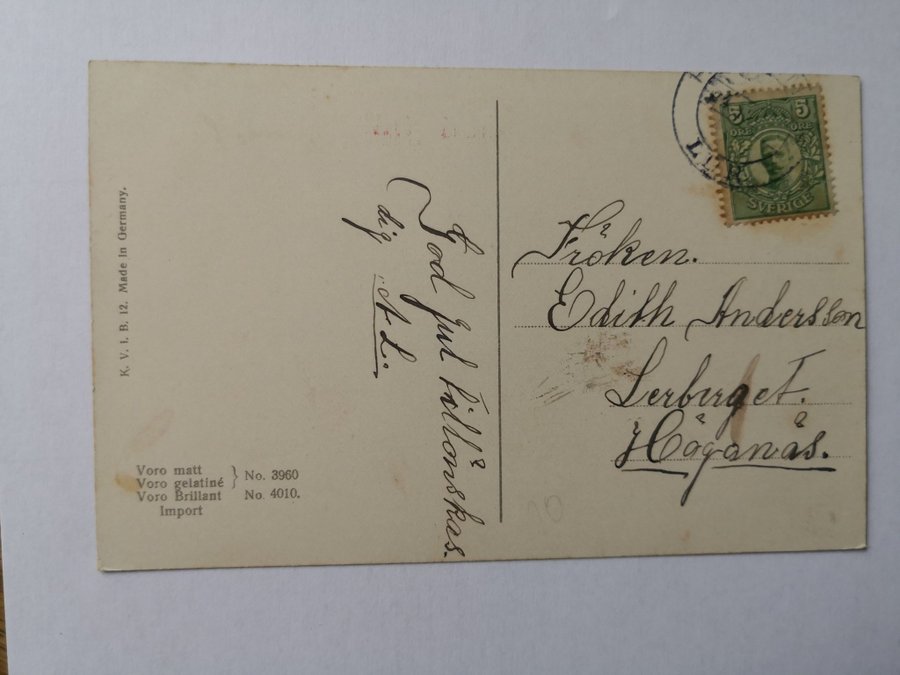 K. V. i. B. 12. Made in Germany.
Voro matt
Voro gelatiné } No. 3960
Voro Brillant No. 4010.
Import
God jul tillönskas
dig A. L.
5 5
ÖRE ÖRE
SVERIGE
Fröken.
Edith Andersson
Lerberget.
Höganäs.